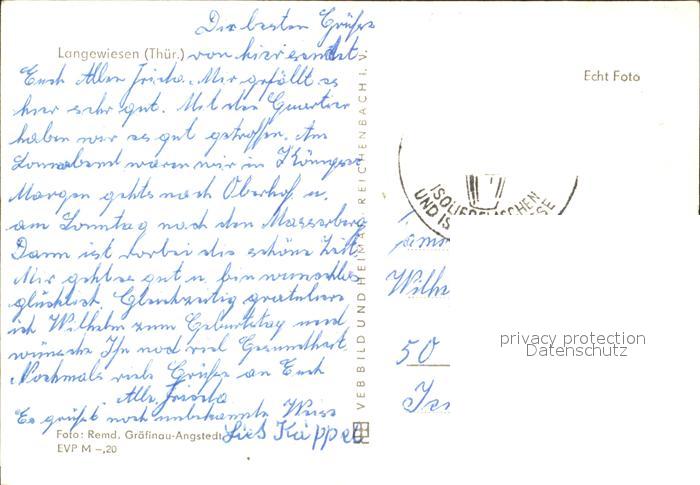 Die besten Grüße
Langewiesen (Thür.) von hier sendet
Euch Allen Frieda. Mir gefällt es
hier sehr gut. Mit den Quartier
haben wir es gut getroffen. Am
Sonnabend waren wir in Königsee
Morgen gehts nach Oberhof u.
am Sonntag nach den Masserberg
Dann ist vorbei die schöne Zeit
Mir geht es gut u. bin wunschlos
glücklich. Gleichzeitig gratuliere
ich Wilhelm zum Geburtstag und
wünsche Ihn noch viel Gesundheit
Nochmals viele Grüße an Euch
Alle Frieda
Es grüßt noch unbekannter Weise
Foto: Remd. Gräfinau-Angstedt
EVP M –,20
VEB BILD UND HEIMAT REICHENBACH I. V.
Echt Foto
ISOLIERFLASCHEN
UND IS
Wilh
50
privacy protection
Datenschutz